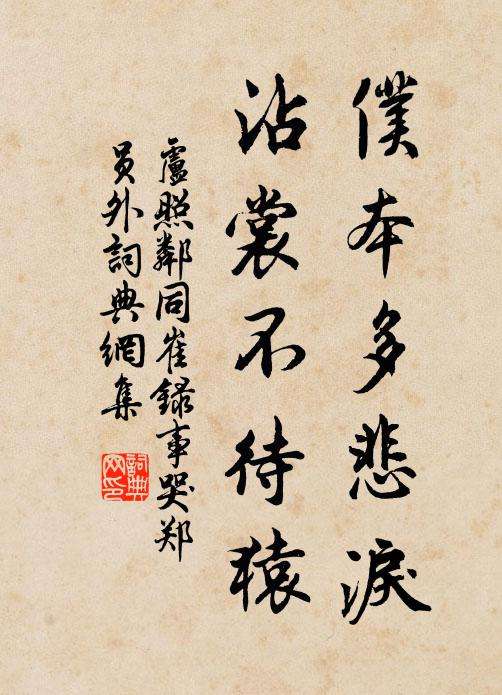 僕本多悲淚
沾裳不待猿
盧照鄰同崔錄事哭郑
員外詞典網集
詞典網印